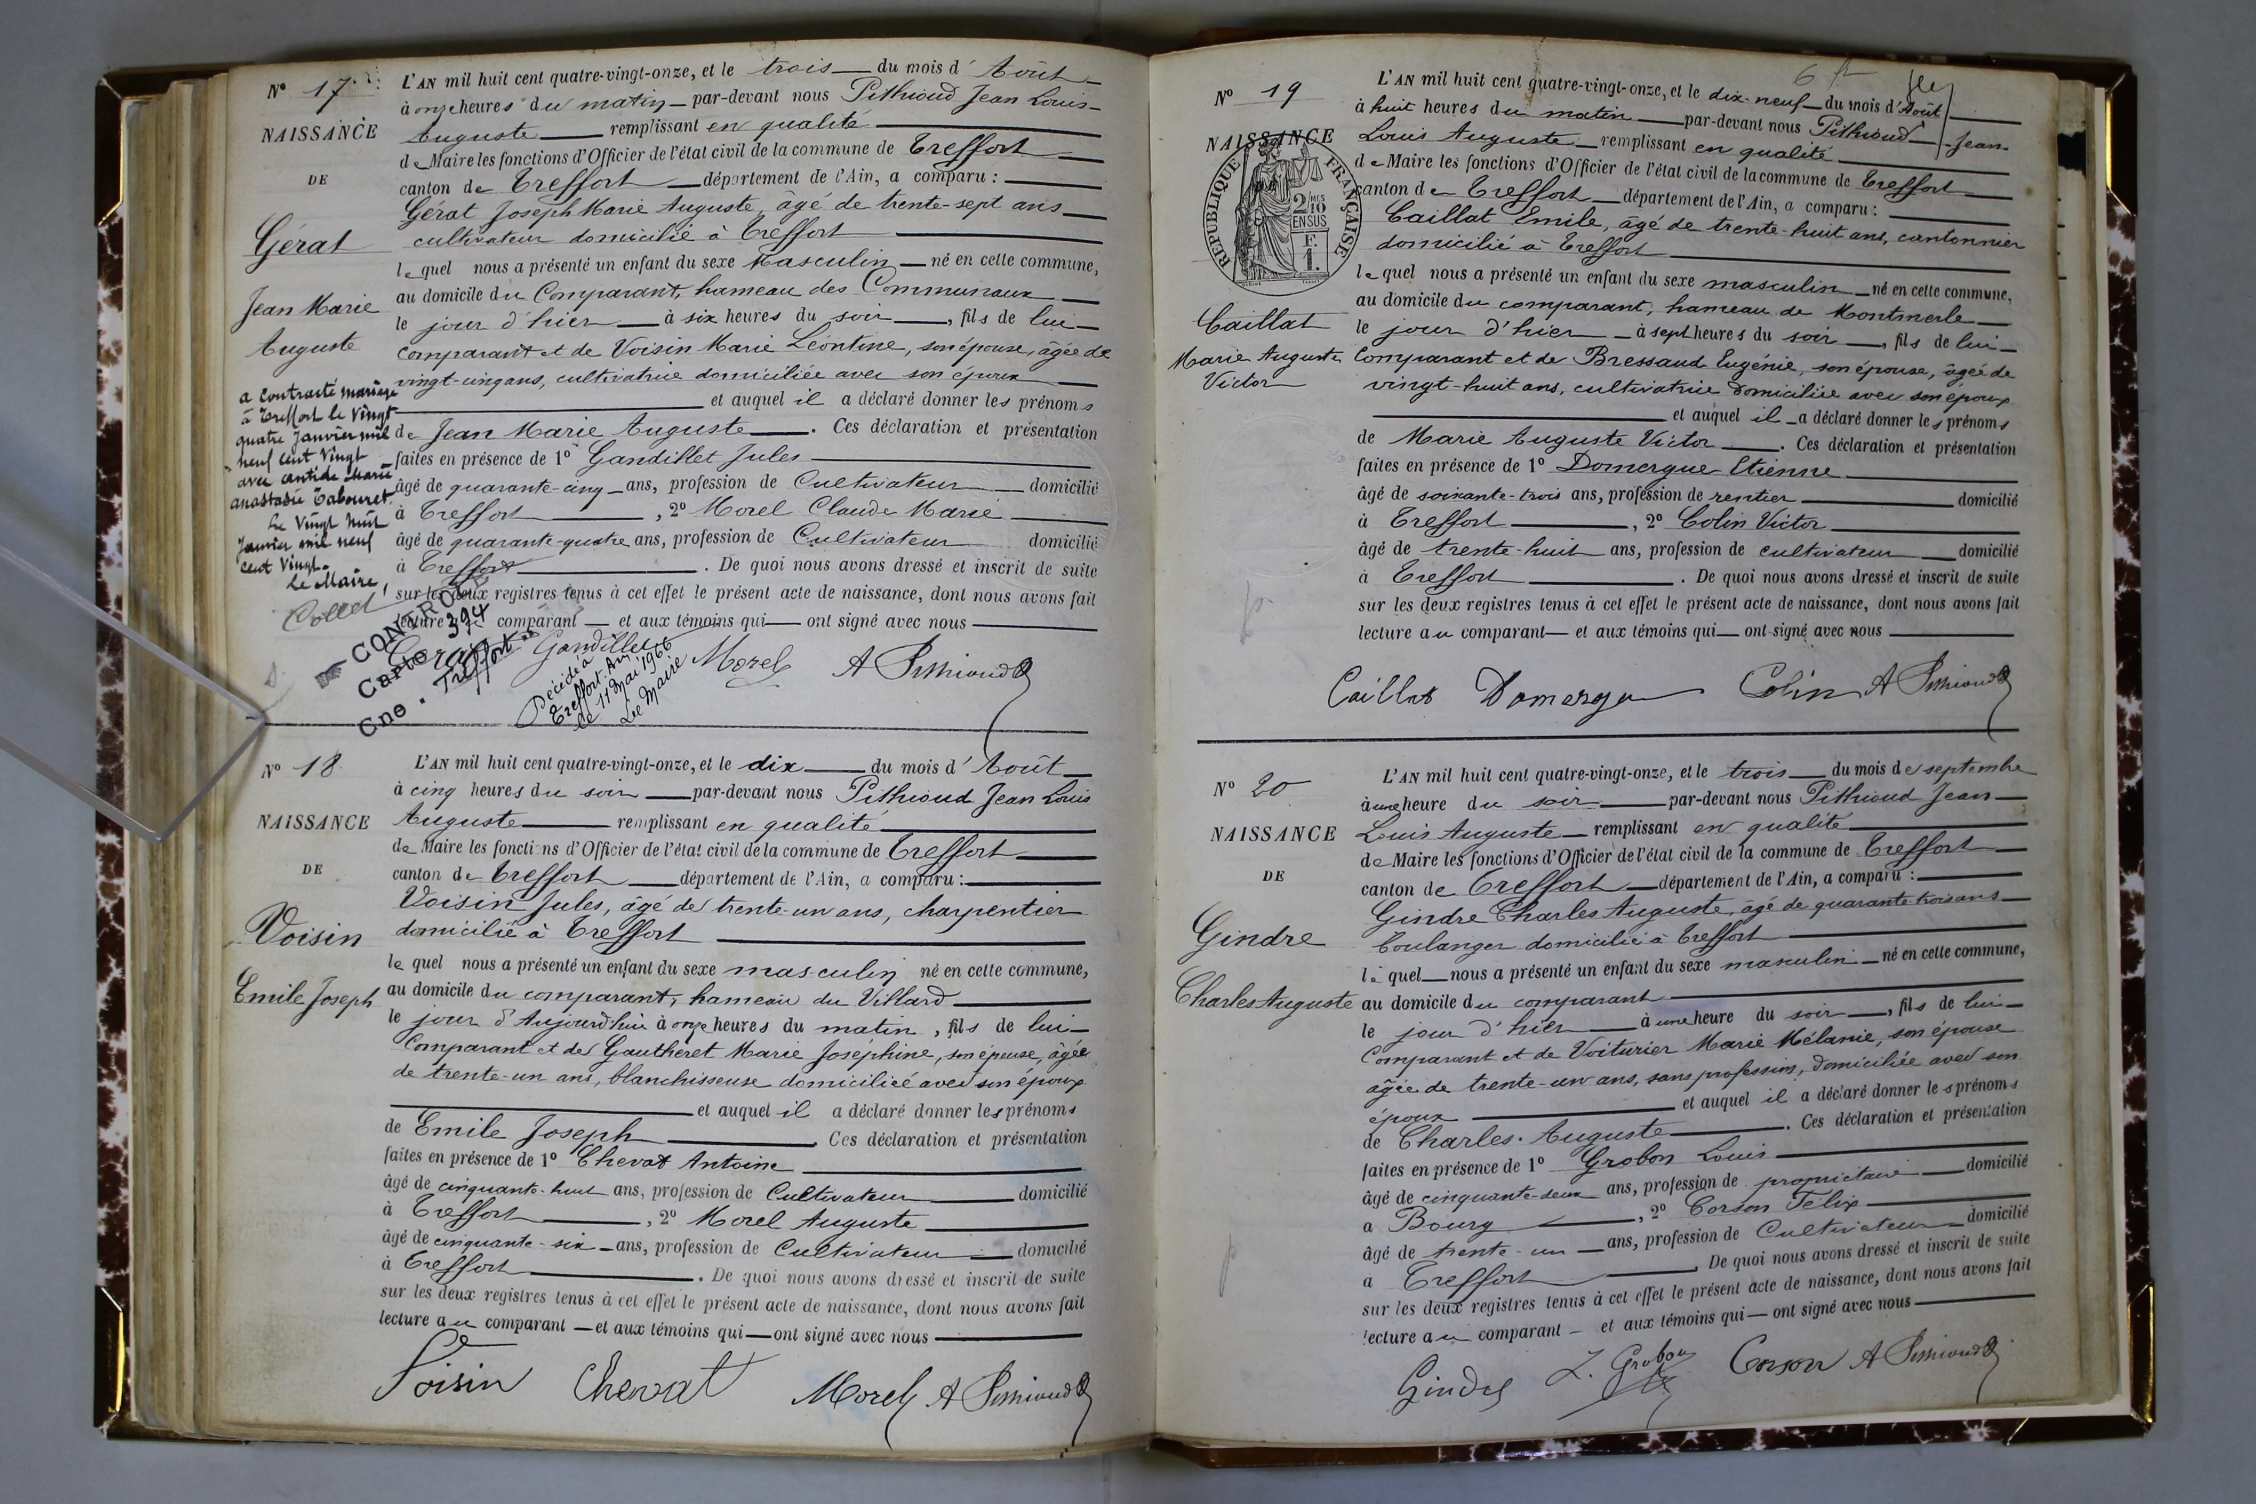 N° 17
NAISSANCE
DE
Gérat
Jean Marie
Auguste
a contracté mariage
à Treffort le vingt
quatre Janvier mil
neuf cent vingt
avec Antide Marie
Anastasie Tabouret.
Le vingt huit
Janvier mil neuf
cent vingt.
Le Maire,
L'AN mil huit cent quatre-vingt-onze, et le trois du mois d'Août
à onze heures du matin par-devant nous Pithioud Jean Louis
Auguste remplissant en qualité
de Maire les fonctions d'Officier de l'état civil de la commune de Treffort
canton de Treffort département de l'Ain, a comparu :
Gérat Joseph Marie Auguste, âgé de trente-sept ans
cultivateur domicilié à Treffort
lequel nous a présenté un enfant du sexe Masculin né en cette commune,
au domicile du Comparant, hameau des Communaux
le jour d'hier à six heures du soir, fils de lui
comparant et de Voisin Marie Léontine, son épouse, âgée de
vingt-cinq ans, cultivatrice domiciliée avec son époux
et auquel il a déclaré donner les prénoms
de Jean Marie Auguste. Ces déclaration et présentation
faites en présence de 1° Gandillet Jules
âgé de quarante-cinq ans, profession de Cultivateur domicilié
à Treffort, 2° Morel Claude Marie
âgé de quarante-quatre ans, profession de Cultivateur domicilié
à Treffort. De quoi nous avons dressé et inscrit de suite
sur les deux registres tenus à cet effet le présent acte de naissance, dont nous avons fait
lecture au comparant et aux témoins qui ont signé avec nous
CONTROLE
Carte 394
Cne. Treffort
Gérat Gandillet Morel A Pithioud
Décédé à
Treffort. Ain
le 11 Mai 1966
Le Maire
N° 18
NAISSANCE
DE
Voisin
Emile Joseph
L'AN mil huit cent quatre-vingt-onze, et le dix du mois d'Août
à cinq heures du soir par-devant nous Pithioud Jean Louis
Auguste remplissant en qualité
de Maire les fonctions d'Officier de l'état civil de la commune de Treffort
canton de Treffort département de l'Ain, a comparu :
Voisin Jules, âgé de trente-un ans, charpentier
domicilié à Treffort
lequel nous a présenté un enfant du sexe masculin né en cette commune,
au domicile du comparant, hameau du Villard
le jour d'Aujourd'hui à onze heures du matin, fils de lui
Comparant et de Gautheret Marie Joséphine, son épouse, âgée
de trente-un ans, blanchisseuse domiciliée avec son époux
et auquel il a déclaré donner les prénoms
de Emile Joseph. Ces déclaration et présentation
faites en présence de 1° Chevat Antoine
âgé de cinquante-huit ans, profession de Cultivateur domicilié
à Treffort, 2° Morel Auguste
âgé de cinquante-six ans, profession de Cultivateur domicilié
à Treffort. De quoi nous avons dressé et inscrit de suite
sur les deux registres tenus à cet effet le présent acte de naissance, dont nous avons fait
lecture au comparant et aux témoins qui ont signé avec nous
Voisin Chevat Morel A Pithioud
N° 19
NAISSANCE
RÉPUBLIQUE FRANÇAISE
2/10 EN SUS
F. 1.
Caillat
Marie Auguste
Victor
L'AN mil huit cent quatre-vingt-onze, et le dix-neuf du mois d'Août
à huit heures du matin par-devant nous Pithioud Jean
Louis Auguste remplissant en qualité
de Maire les fonctions d'Officier de l'état civil de la commune de Treffort
canton de Treffort département de l'Ain, a comparu :
Caillat Emile, âgé de trente-huit ans, cantonnier
domicilié à Treffort
lequel nous a présenté un enfant du sexe masculin né en cette commune,
au domicile du comparant, hameau de Montmerle
le jour d'hier à sept heures du soir, fils de lui
Comparant et de Bressaud Eugénie, son épouse, âgée de
vingt-huit ans, cultivatrice domiciliée avec son époux
et auquel il a déclaré donner les prénoms
de Marie Auguste Victor. Ces déclaration et présentation
faites en présence de 1° Domergue Etienne
âgé de soixante-trois ans, profession de rentier domicilié
à Treffort, 2° Colin Victor
âgé de trente-huit ans, profession de cultivateur domicilié
à Treffort. De quoi nous avons dressé et inscrit de suite
sur les deux registres tenus à cet effet le présent acte de naissance, dont nous avons fait
lecture au comparant et aux témoins qui ont signé avec nous
Caillat Domergue Colin A Pithioud
N° 20
NAISSANCE
DE
Gindre
Charles Auguste
L'AN mil huit cent quatre-vingt-onze, et le trois du mois de septembre
à une heure du soir par-devant nous Pithioud Jean
Louis Auguste remplissant en qualité
de Maire les fonctions d'Officier de l'état civil de la commune de Treffort
canton de Treffort département de l'Ain, a comparu :
Gindre Charles Auguste, âgé de quarante-trois ans
boulanger domicilié à Treffort
lequel nous a présenté un enfant du sexe masculin né en cette commune,
au domicile du comparant
le jour d'hier à une heure du soir, fils de lui
Comparant et de Voiturier Marie Mélanie, son épouse
âgée de trente-un ans, sans profession, domiciliée avec son
époux et auquel il a déclaré donner les prénoms
de Charles Auguste. Ces déclaration et présentation
faites en présence de 1° Grobon Louis
âgé de cinquante-deux ans, profession de propriétaire domicilié
à Bourg, 2° Corson Félix
âgé de trente-un ans, profession de Cultivateur domicilié
à Treffort De quoi nous avons dressé et inscrit de suite
sur les deux registres tenus à cet effet le présent acte de naissance, dont nous avons fait
lecture au comparant et aux témoins qui ont signé avec nous
Gindre L. Grobon Corson A Pithioud